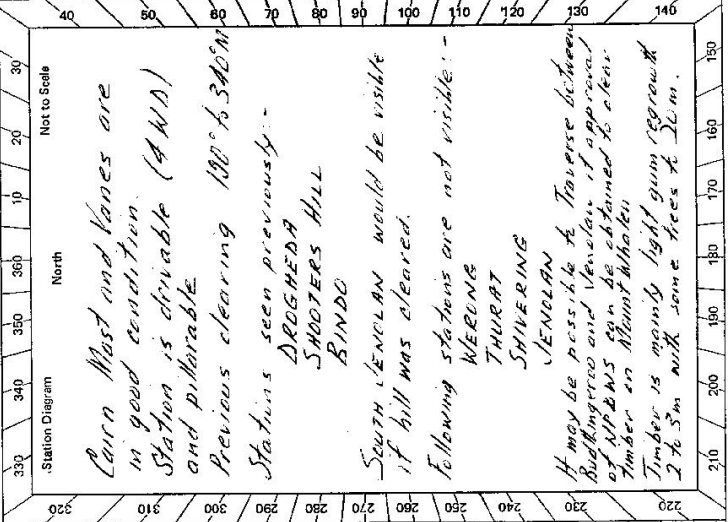 330 340 350 360 10 20 30
Station Diagram North Not to Scale
Cairn Mast and Vanes are
in good condition.
Station is drivable (4WD)
and pillarable
Previous clearing 190° to 340°M
Stations seen previously:-
DROGHEDA
SHOOTERS HILL
BINDO
SOUTH JENOLAN would be visible
if hill was cleared.
Following stations are not visible:-
WERONG
THURAT
SHIVERING
JENOLAN
It may be possible to Traverse between
and Jenolan if approval
of NPBWS can be obtained to clear
timber on Mount Whalen
Timber is mainly light gum regrowth
2 to 3m with some trees to 20m.
40
50
60
70
80
90
100
110
120
130
140
320
310
300
290
280
270
260
250
240
230
220
210 200 190 180 170 160 150